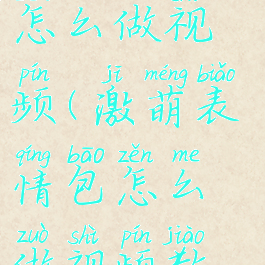 怎么做视
pín jī méng biǎo
频(激萌表
qíng bāo zěn me
情包怎么
zuò shì pín jiào
做视频教